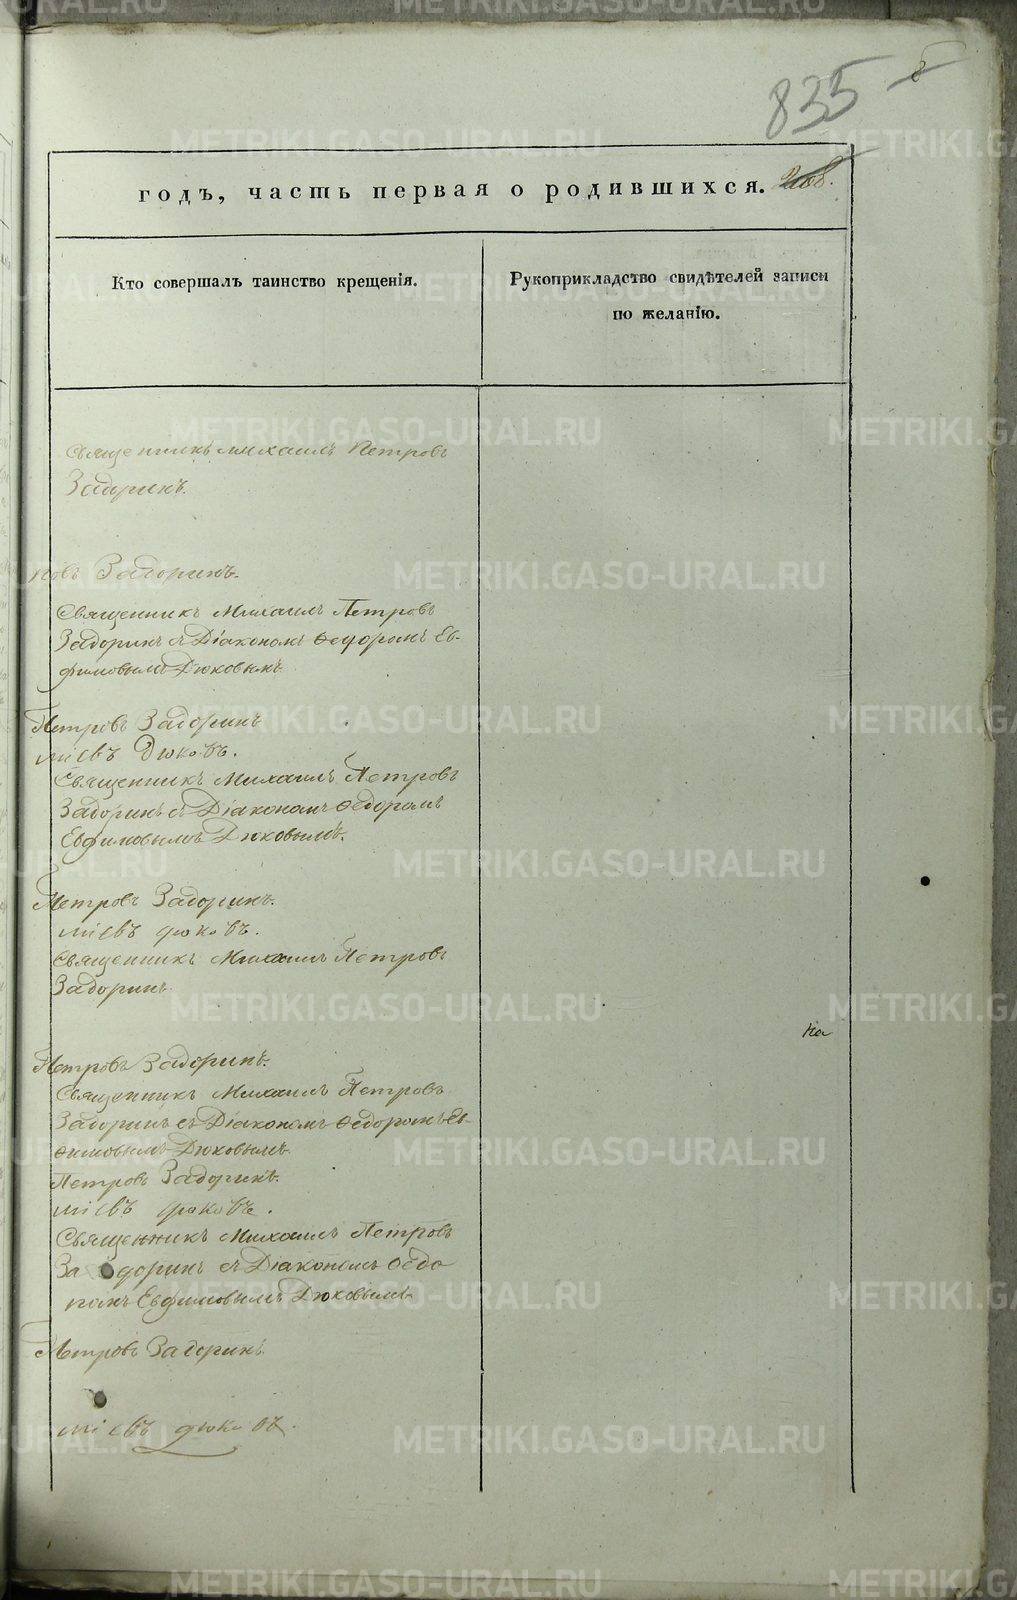 835
8
годъ, часть первая о родившихся.
Кто совершалъ таинство крещенія.
Рукоприкладство свидѣтелей записи
по желанію.
Священникъ Михаилъ Петровъ
Задоринъ.
ровъ Задоринъ.
Священникъ Михаилъ Петровъ
Задоринъ съ Діакономъ Ѳедоромъ Ев-
фимовымъ Дюковымъ
Петровъ Задоринъ
міевъ Дюковъ.
Священникъ Михаилъ Петровъ
Задоринъ съ Діакономъ Ѳедоромъ
Евфимовымъ Дюковымъ.
Петровъ Задоринъ.
міевъ Дюковъ.
Священникъ Михаилъ Петровъ
Задоринъ
на
Петровъ Задоринъ.
Священникъ Михаилъ Петровъ
Задоринъ съ Діакономъ Ѳедоромъ Ев-
ѳимовымъ Дюковымъ
Петровъ Задоринъ.
міевъ Дюковъ.
Священникъ Михаилъ Петровъ
Задоринъ съ Діакономъ Ѳедо
ромъ Евфимовымъ Дюковымъ
Петровъ Задоринъ
міевъ Дюковъ.
METRIKI.GASO-URAL.RU